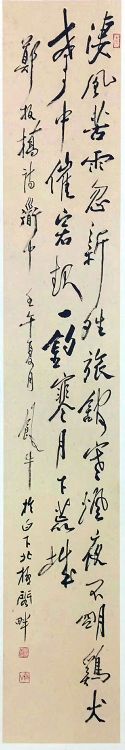 淒風苦雨忽新晴旅館寒燈夜不明鷄犬
聲中催客起一鈎寒月下蕪城
鄭板橋詩 壬午夏月 於白下北極閣畔